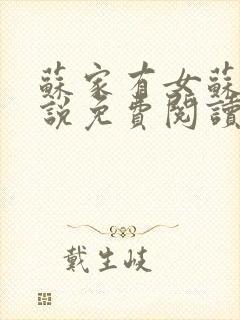 蘇家有女蘇
說免費閱讀
戴生岐